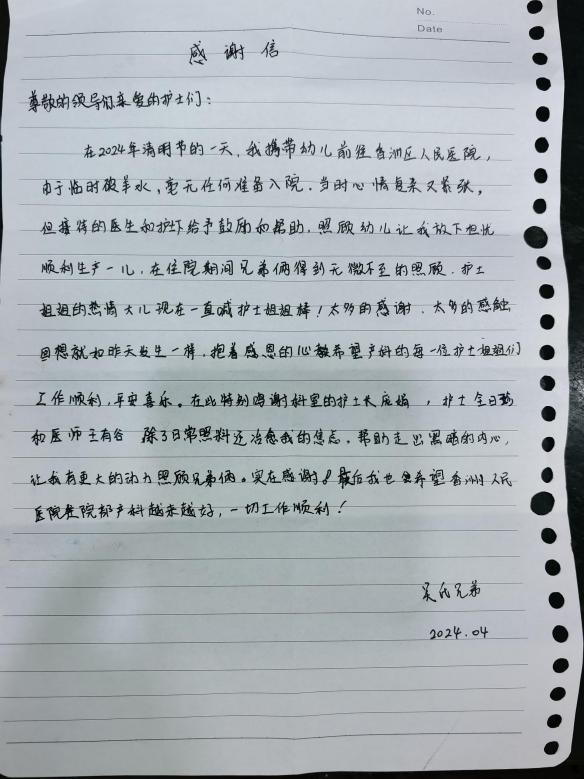 No.
Date
感谢信
尊敬的领导们亲爱的护士们：
在2024年清明节的一天，我携带幼儿前往香洲区人民医院，
由于临时破羊水，毫无任何准备入院，当时心情复杂又紧张，
但接待的医生和护士给予鼓励和帮助，照顾幼儿让我放下担忧
顺利生产一儿，在住院期间兄弟俩得到无微不至的照顾，护士
姐姐的热情大儿现在一直喊护士姐姐棒！太多的感谢，太多的感触
回想就如昨天发生一样，抱着感恩的心敬希望产科的每一位护士姐姐们
工作顺利，平安喜乐。在此特别鸣谢科室的护士长庞娟，护士全日
和医师王有谷 除了日常照料还治愈我的焦虑，帮助走出黑暗的内心，
让我有更大的动力照顾兄弟俩。实在感谢！最后我也希望香洲人民
医院住院部产科越来越好，一切工作顺利！
吴氏兄弟
2024.04